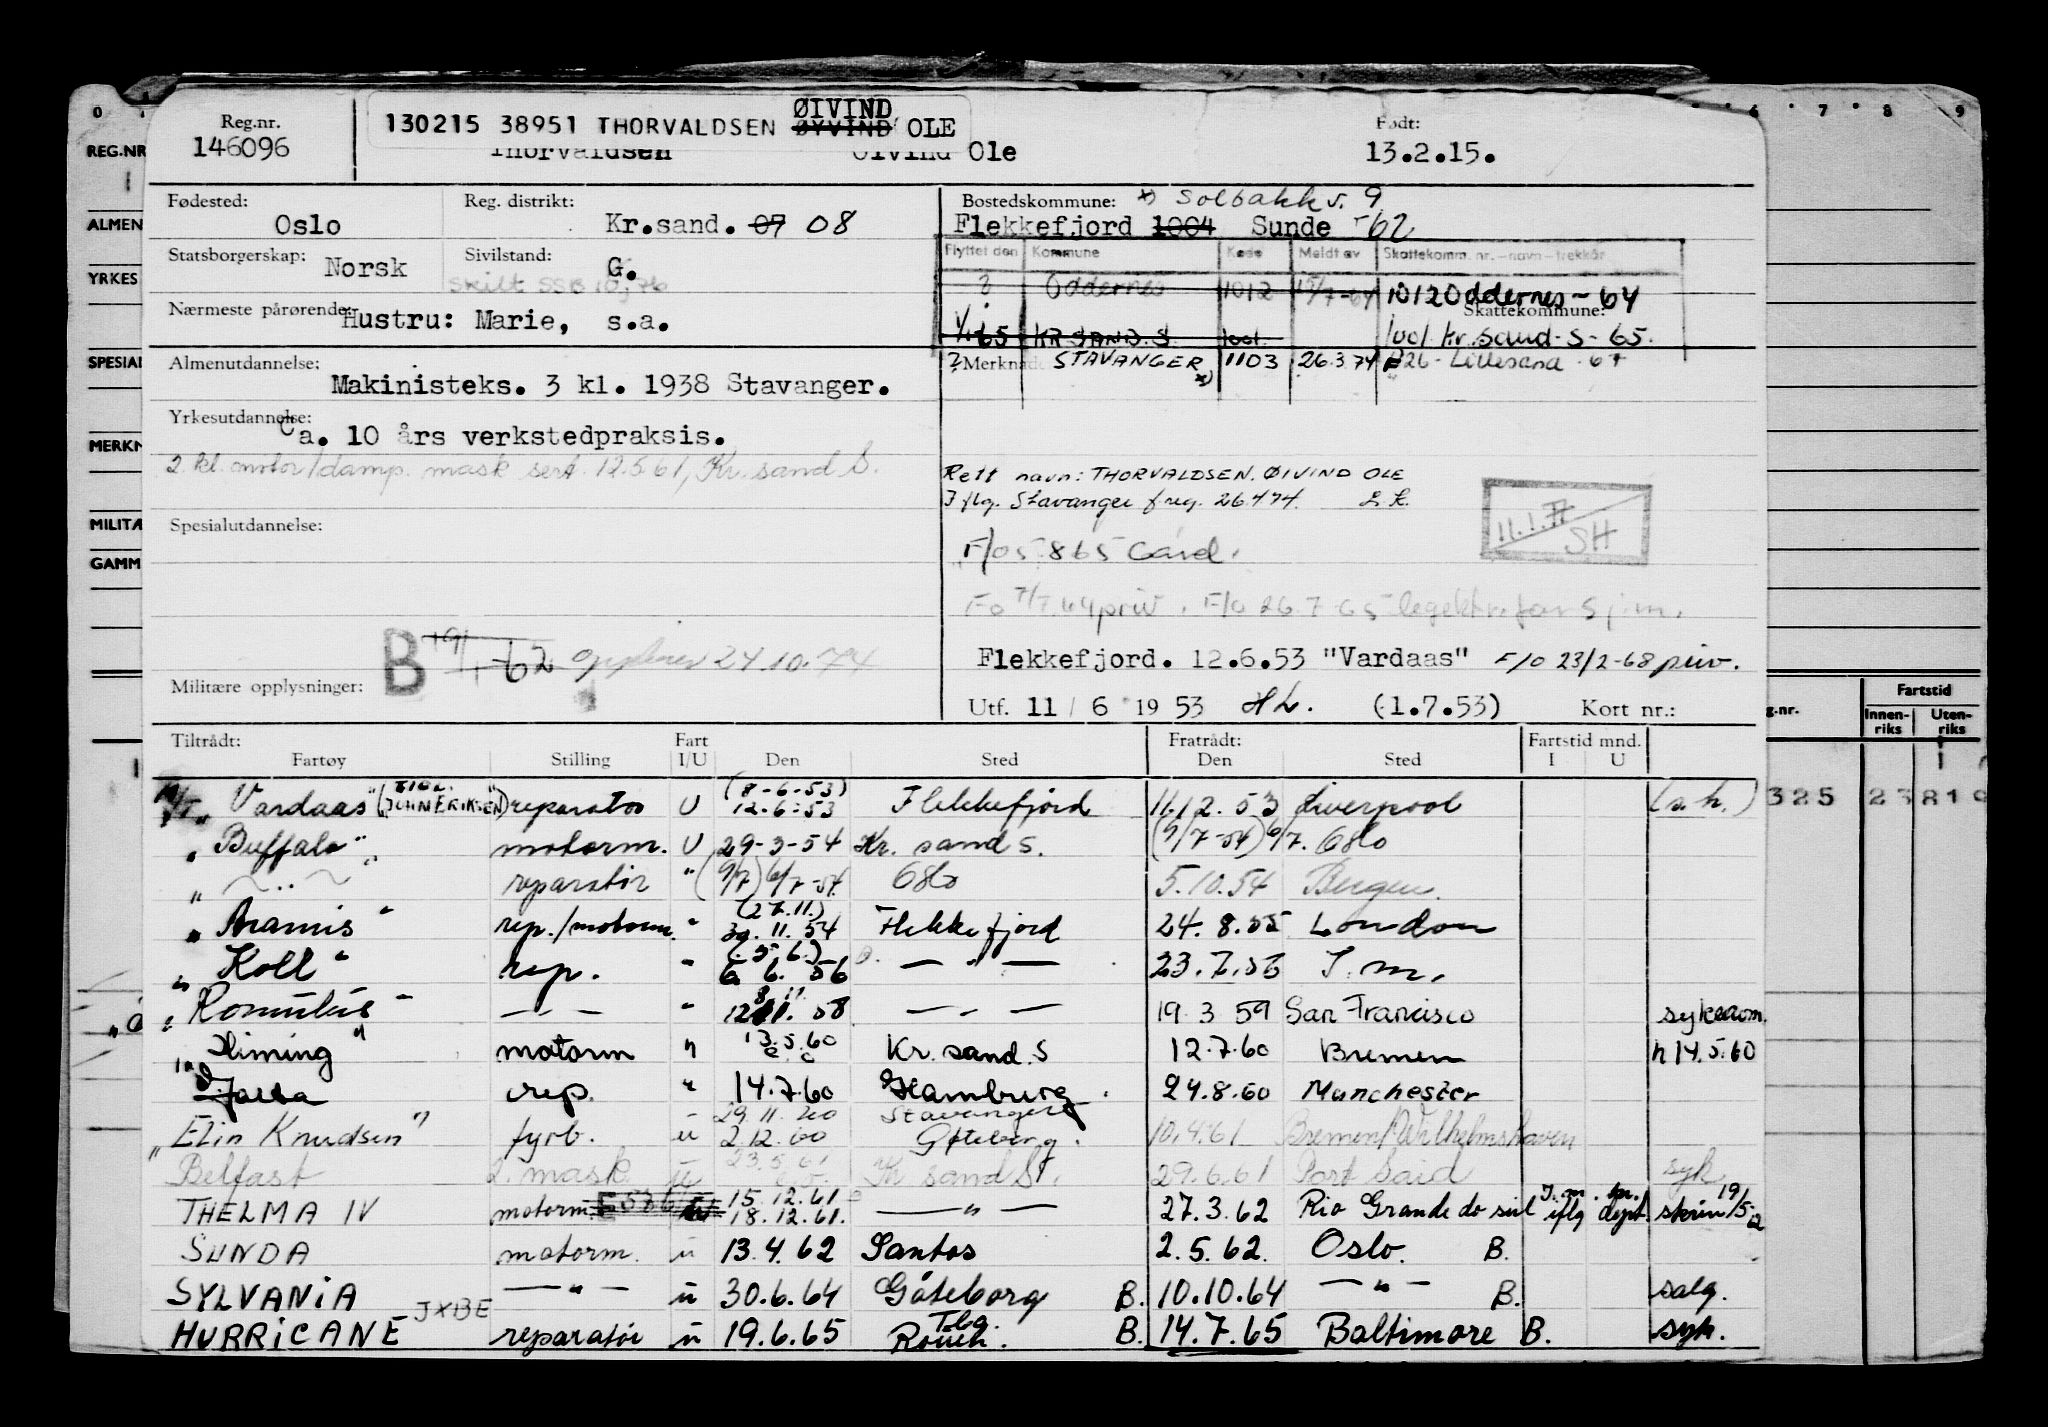 Reg.nr.
146096
130215 38951 THORVALDSEN ØYVIND OLE
ØIVIND
Thorvaldsen Öivind Ole
Født:
13.2.15.
Fødested: Oslo
Reg. distrikt: Kr.sand. 07 08
Bostedskommune: x) Solbakkv. 9
Flekkefjord 1004 Sunde -62
Statsborgerskap: Norsk
Sivilstand: G.
Skilt SSB
Flyttet den Kommune Kode Meldt av Skattekomm. nr.-navn-trekkår
? Oddernes 1012 15/7-64 1012 Oddernes - 64
Skattekommune:
1/1-65 KR SAND. S 1001 1001 kr. sand-S-65.
Nærmeste pårørende: Hustru: Marie, s.a.
? STAVANGER x) 1103 26.3.74 926 - Lillesand 67
Almenutdannelse:
Makinisteks. 3 kl. 1938 Stavanger.
Yrkesutdannelse:
Ca. 10 års verkstedpraksis.
2. kl. motor/damp. mask sert. 12.5.61, Kr. sand S.
Rett navn: THORVALDSEN. ØIVIND OLE
Iflg. Stavanger freg. 26.4.74. L.K.
Spesialutdannelse:
11.1.77
SH
F/o 5-8 65 Card.
Fo 7/7.64 priv. F/o 26.7-65
B
-62 24.10.74
Flekkefjord. 12.6.53 "Vardaas" F/o 23/2-68 priv.
Militære opplysninger:
Utf. 11 / 6 19 53 (1.7.53) Kort nr.:
Tiltrådt: Fart Fratrådt: Fartstid mnd.
Fartøy Stilling I/U Den Sted Den Sted I U
M/T "Vardaas" (JOHN ERIKSEN) reparatør U (8-6-53) 12.6.53 Flekkefjord 11.12.53 Liverpool (s.h.)
"Buffalo" motorm. U 29-3-54 Kr. sand S. (9/7-54) 6/7. Oslo
" ~ .. ~ " reparatør " (9/7) 6/7-54. Oslo 5.10.54 Bergen.
"Aramis" rep./motorm. " (27.11.) 30.11.54 Flekkefjord 24.8.55 London
"Koll" rep. " (5.6.) 6 6. 56 — " — 23.7.56 I.m.
"Romulus" — " — " 58 — " — 19.3.59 San Francisco sykeavm.
"Himing" motorm " 13.5.60 Kr. sand. S 12.7.60 Bremen n 14.5.60
"Jalta rep. " 14.7.60 Hamburg 24.8.60 Manchester
"Elin Knudsen" fyrb. u 29.11.60 2.12.60 Stavanger Gøteborg. 10.4.61 Bremen/Wilhelmshaven
Belfast 2. mask u 23.5.61 Kr sand S. 29.6.61 Port Said syk
THELMA IV motorm. 15.12.61 18.12.61. — " — 27.3.62 Rio Grande do sul I.m. iflg dept. skriv 19/5-62
SUNDA motorm. u 13.4.62 Santos 2.5.62. Oslo. B.
SYLVANIA — " — u 30.6.64 Göteborg B. 10.10.64 — " — B. salg.
HURRICANE JXBE reparatør u 19.6.65 Tbg. Rouen. B. 14.7.65 Baltimore B. syk.
0 6 7 8 9
REG.NR
ALMEN
YRKES
SPESIAL
MERKN
MILITÆ
GAMM
g.nr.
Fartstid
Innenriks
Utenriks
325 23 819